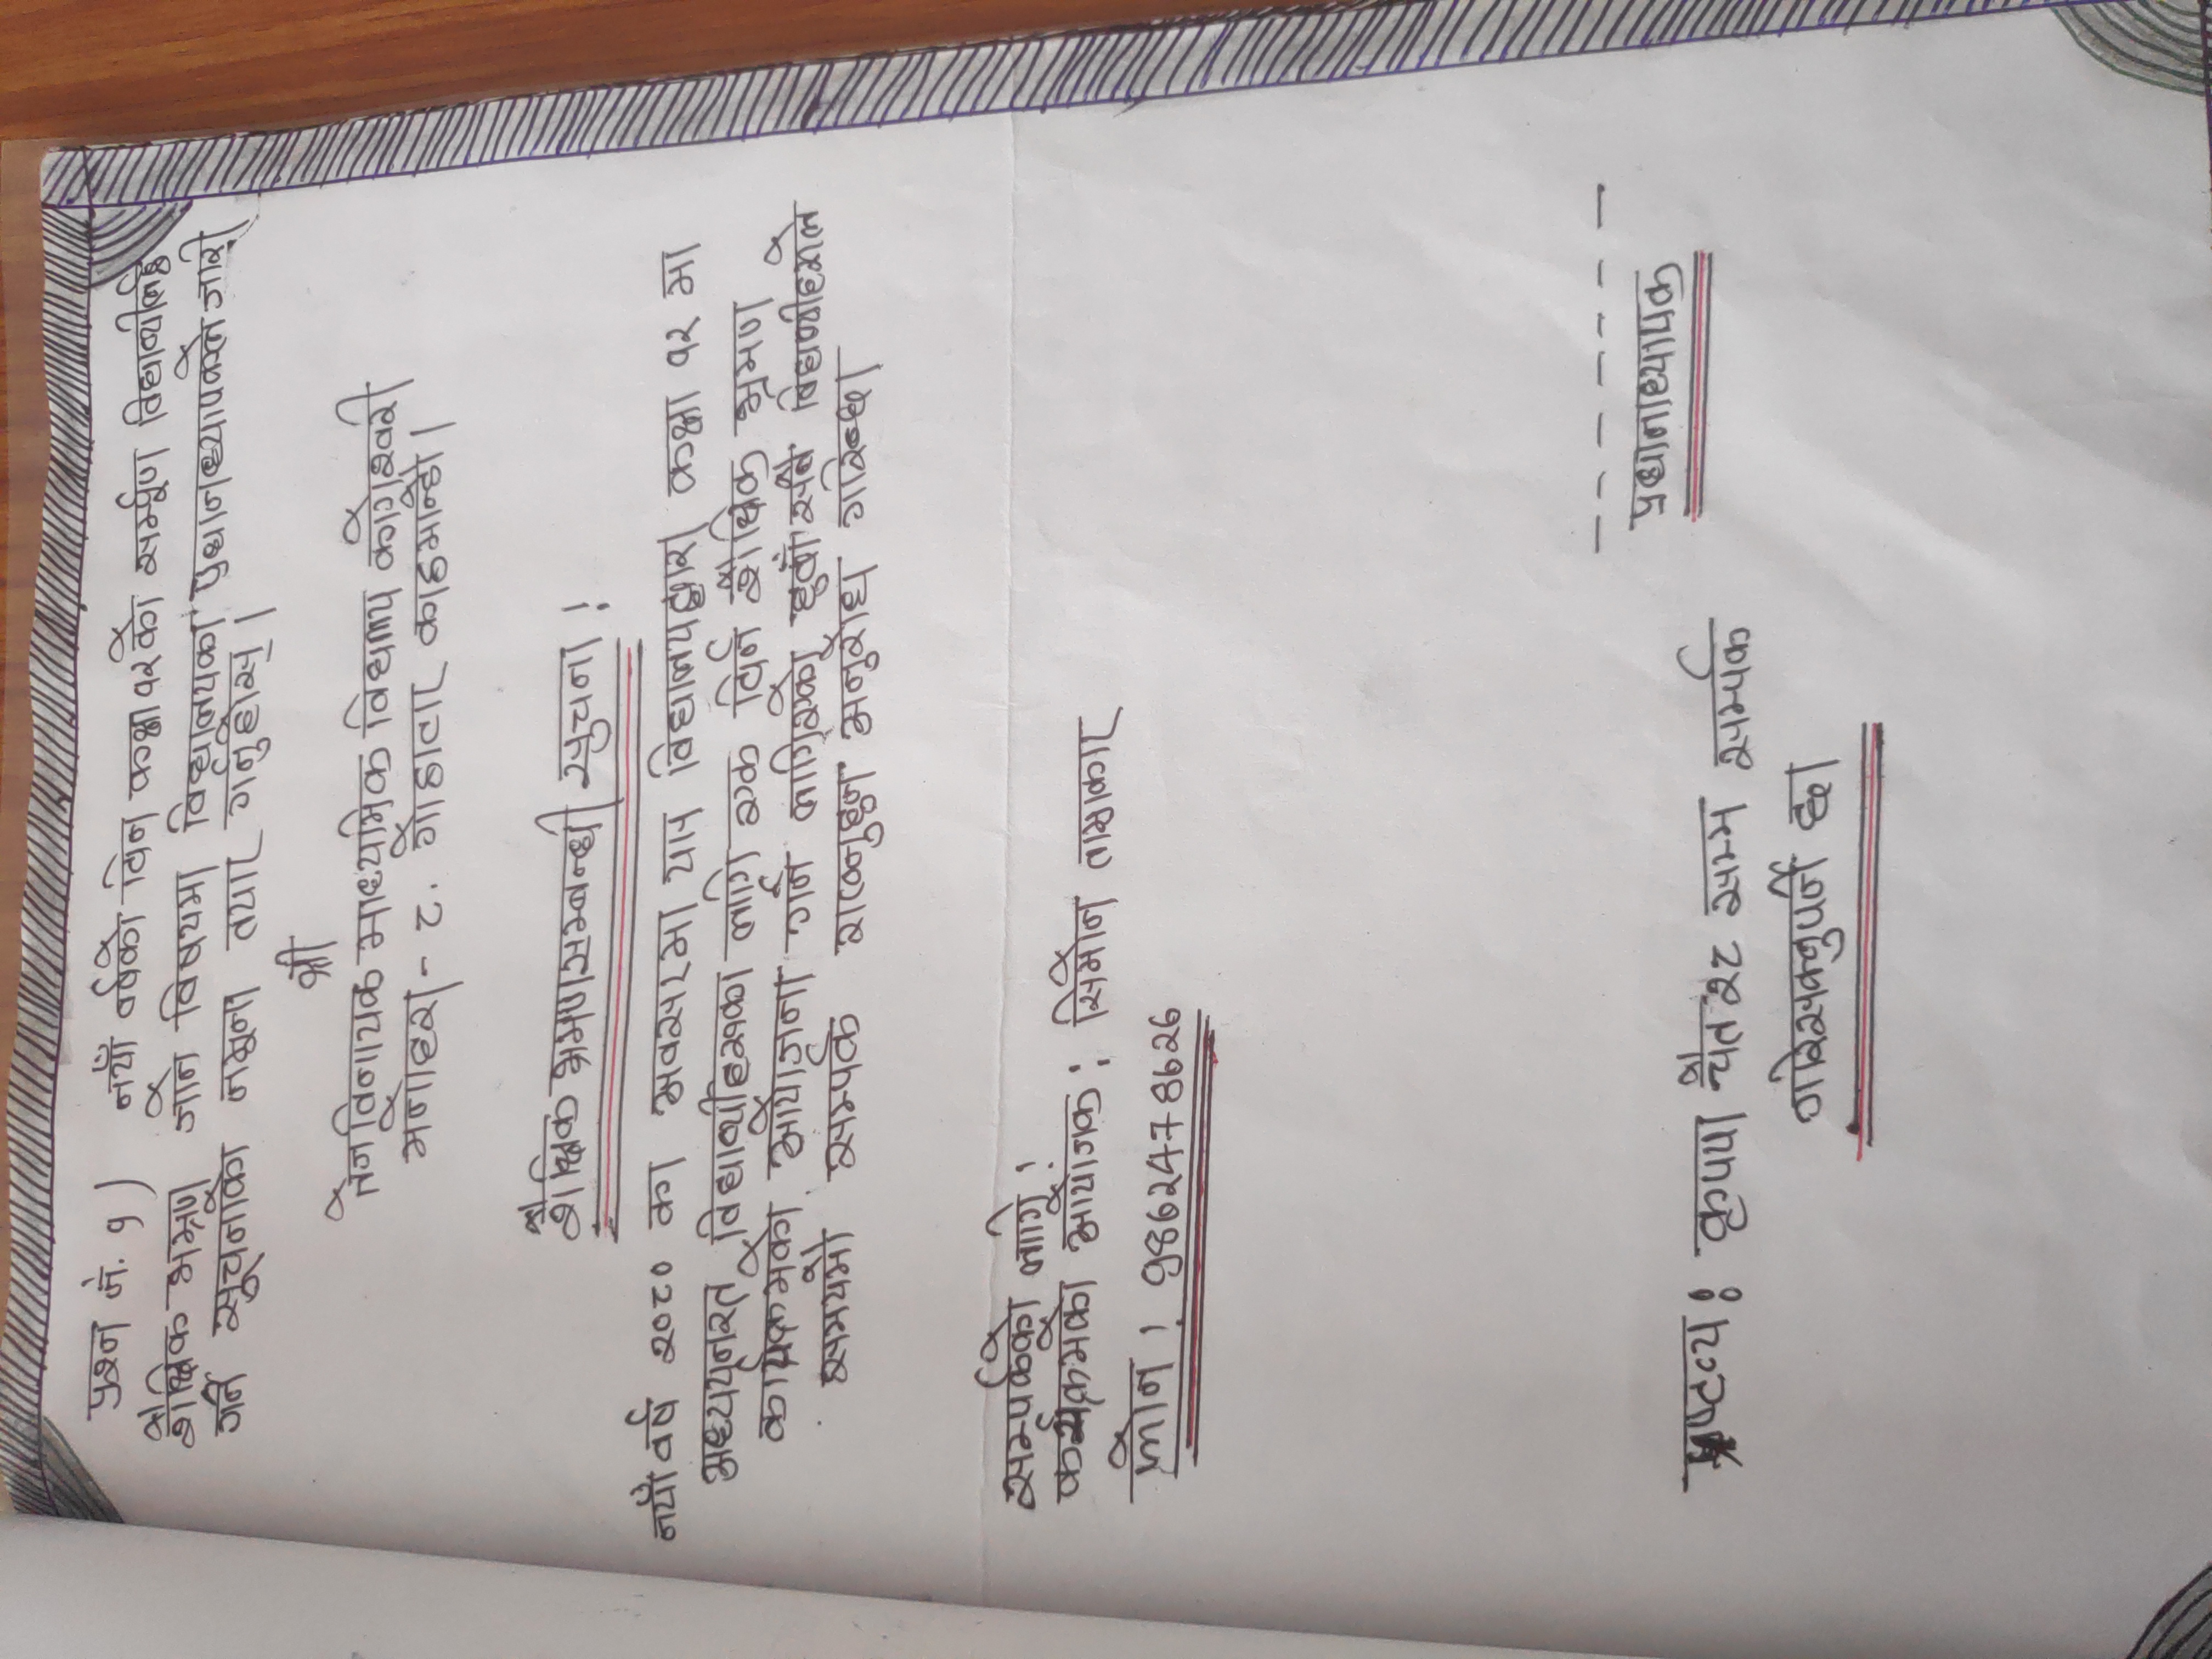 प्रश्न नं. १) नयाँ वर्षको दिन कक्षा १२ को सर्म्पूण विद्यार्थीलाई
शैक्षिक भम्रण जाने विषयमा विद्यालयका प्रधानध्यापकले जारी
गर्ने सूचनाको नमूना तयार गर्नुहोस् ।
श्री
तेजविनायक माध्यमिक विद्यालय कागेश्वरी
मनोहरा - ८. गोठाटार काठमान्डौ ।
शैक्षिक भ्रमणसम्बन्धी सुचना !
नयाँ वर्ष २०८० का अवसरमा यस विद्यालयद्वारा कक्षा १२ मा
अध्ययनरत विद्यार्थीहरुका लागि एक दिने शैक्षिक भ्रमण
कार्यक्रमको आयोजना गर्न लागिएको हुदाँ सबै विद्यार्थीहरुले
समयमै सम्पर्क राख्नुहुन अनुरोध गरिन्छ।
सम्पर्कको लागि !
कार्यक्रमको आयोजक : सिमोन ताम्राकार
फोन ! 9862478626
- - - - - - -
प्रधानाध्यापक
द्रष्टव्य : कृपया चैत २८ सम्म सर्म्पक
गरिसक्नुपर्ने छ।